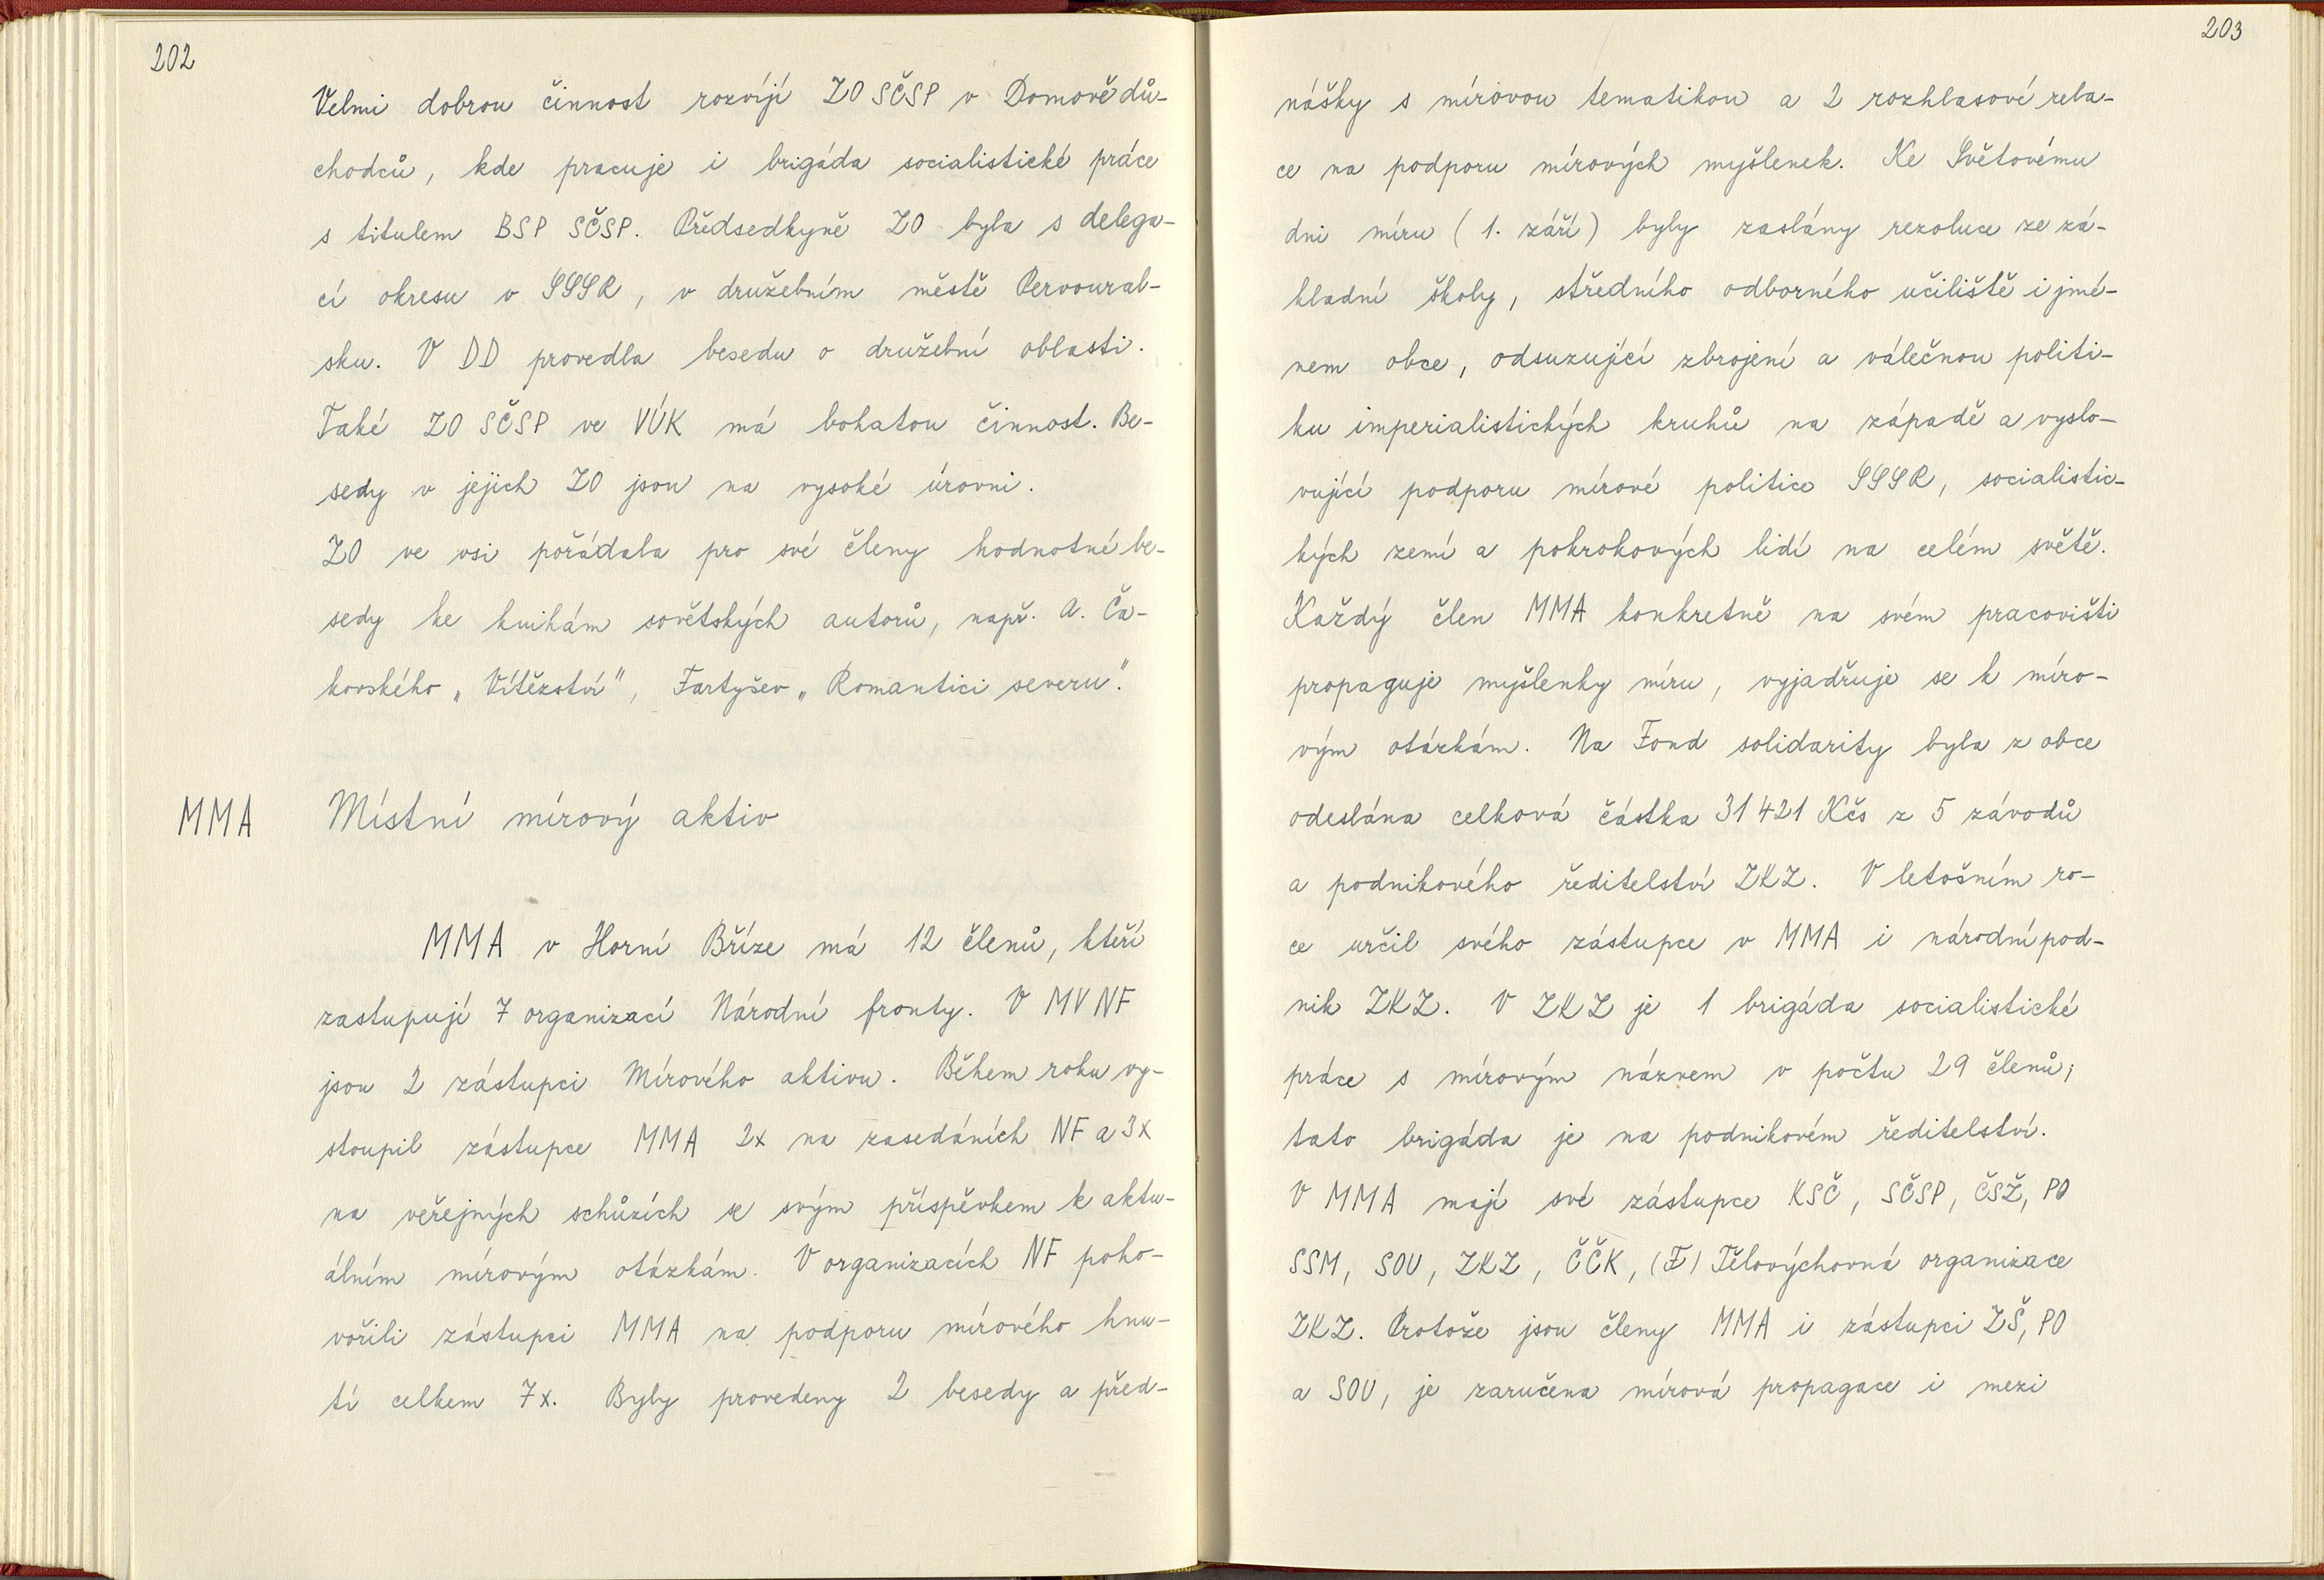 202
Velmi dobrou činnost rozvíjí ZO SČSP v Domově dů-
chodců, kde pracuje i brigáda socialistické práce
s titulem BSP SČSP. Předsedkyně ZO byla s delega-
cí okresu v SSSR, v družebním městě Pervoural-
sku. V DD provedla besedu o družební oblasti.
Také ZO SČSP ve VÚK má bohatou činnost. Be-
sedy v jejich ZO jsou na vysoké úrovni.
ZO ve vsi pořádala pro své členy hodnotné be-
sedy ke knihám sovětských autorů, např. A. Ča-
kovského „Vítězství", Fartyšev „Romantici severu".
MMA Místní mírový aktiv
MMA v Horní Bříze má 12 členů, kteří
zastupují 7 organizací Národní fronty. V MV NF
jsou 2 zástupci Mírového aktivu. Během roku vy-
stoupil zástupce MMA 2x na zasedáních NF a 3x
na veřejných schůzích se svým příspěvkem k aktu-
álním mírovým otázkám. V organizacích NF poho-
vořili zástupci MMA na podporu mírového hnu-
tí celkem 7x. Byly provedeny 2 besedy a před-
203
nášky s mírovou tematikou a 2 rozhlasové rela-
ce na podporu mírových myšlenek. Ke Světovému
dni míru (1. září) byly zaslány rezoluce ze zá-
kladní školy, středního odborného učiliště i jmé-
nem obce, odsuzující zbrojení a válečnou politi-
ku imperialistických kruhů na západě a vyslo-
vující podporu mírové politice SSSR, socialistic-
kých zemí a pokrokových lidí na celém světě.
Každý člen MMA konkretně na svém pracovišti
propaguje myšlenky míru, vyjadřuje se k míro-
vým otázkám. Na Fond solidarity byla z obce
odeslána celková částka 31 421 Kčs z 5 závodů
a podnikového ředitelství ZKZ. V letošním ro-
ce určil svého zástupce v MMA i národní pod-
nik ZKZ. V ZKZ je 1 brigáda socialistické
práce s mírovým názvem v počtu 29 členů;
tato brigáda je na podnikovém ředitelství.
V MMA mají své zástupce KSČ, SČSP, ČSŽ, PO
SSM, SOU, ZKZ, ČČK, (F) Tělovýchovná organizace
ZKZ. Protože jsou členy MMA i zástupci ZŠ, PO
a SOU, je zaručena mírová propagace i mezi